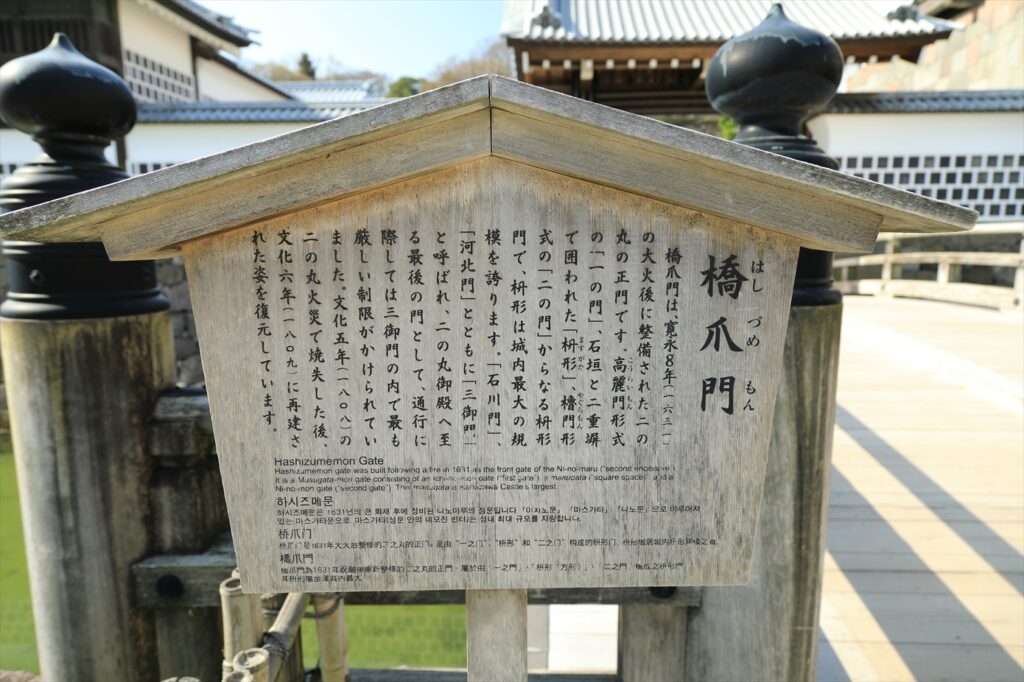 橋爪門
はしづめもん
橋爪門は、寛永8年(一六三一)
の大火後に整備された二の
丸の正門です。高麗門形式
こうらいもん
の「一の門」石垣と二重塀
で囲われた「枡形」、櫓門形
ますがた
やぐらもん
式の「二の門」からなる枡形
門で、枡形は城内最大の規
模を誇ります。「石川門」、
「河北門」とともに「三御門」
と呼ばれ、二の丸御殿へ至
る最後の門として、通行に
際しては三御門の内で最も
厳しい制限がかけられてい
ました。文化五年(一八〇八)の
二の丸火災で焼失した後、
文化六年(一八〇九)に再建さ
れた姿を復元しています。
Hashizumemon Gate
Hashizumemon gate was built following a fire in 1631 as the front gate of the Ni-no-maru ("second enclosure").
It is a Masugata-mon gate consisting of an Ichi-no-mon gate ("first gate"), a masugata ("square space") and a
Ni-no-mon gate ("second gate"). This masugata is Kanazawa Castle's largest.
하시즈메문
하시즈메문은 1631년의 큰 화재 후에 정비된 니노마루의 정문입니다. 「이치노문」 「마스가타」 「니노문」으로 이루어져
있는 마스가타문으로, 마스가타(성문 안의 네모진 빈터)는 성내 최대 규모를 자랑합니다.
桥爪门
桥爪门是1631年大火后整修的二之丸的正门。是由“一之门”、“枡形”和“二之门”构成的枡形门,
橋爪門
橋爪門為1631年 整修的二之丸的正門,屬於由「一之門」、「枡形 方形)」、「二之門」構成之枡形門